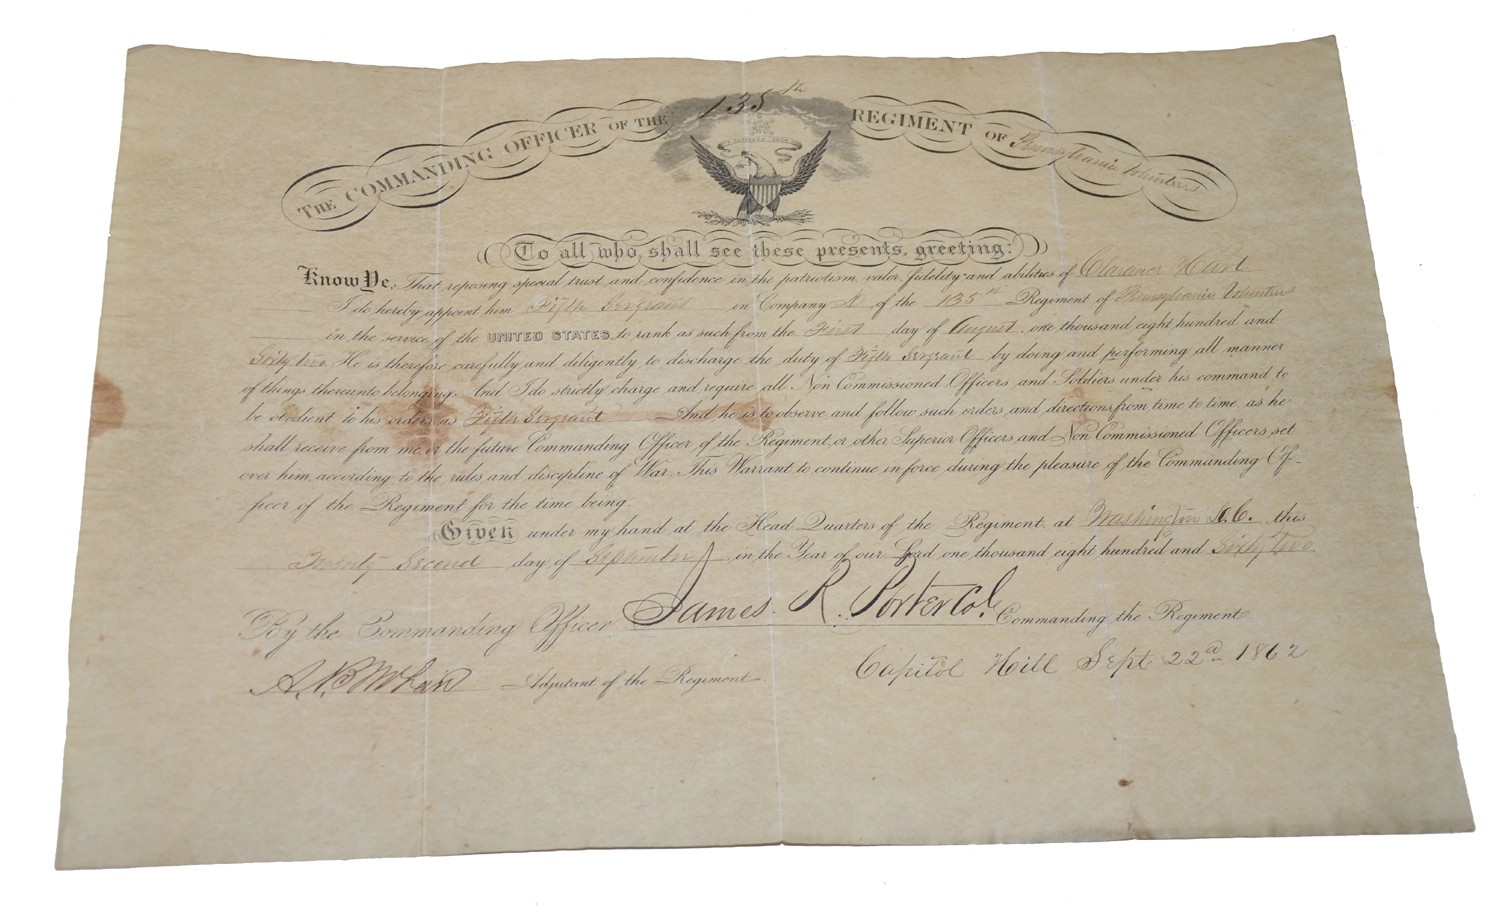 135th
THE COMMANDING OFFICER OF THE REGIMENT OF Pennsylvania Volunteers
To all who shall see these presents, greeting:
Know Ye, That reposing special trust and confidence in the patriotism, valor, fidelity and abilities of Clarence Hart
I do hereby appoint him Fifth Sergeant in Company A of the 135th Regiment of Pennsylvania Volunteers
in the service of the UNITED STATES, to rank as such from the First day of August one thousand eight hundred and
Sixty two. He is therefore carefully and diligently to discharge the duty of Fifth Sergeant by doing and performing all manner
of things thereunto belonging. And I do strictly charge and require all Non Commissioned Officers and Soldiers under his command to
be obedient to his orders as Fifth Sergeant And he is to observe and follow such orders and directions from time to time, as he
shall receive from me, or the future Commanding Officer of the Regiment, or other Superior Officers and Non Commissioned Officers set
over him, according to the rules and discipline of War. This Warrant to continue in force during the pleasure of the Commanding Of-
ficer of the Regiment for the time being.
Given under my hand at the Head Quarters of the Regiment, at Washington D.C. this
Twenty Second day of September in the Year of our Lord one thousand eight hundred and Sixty Two
By the Commanding Officer James R. Porter Col. Commanding the Regiment.
Adjutant of the Regiment Capitol Hill Sept 22d 1862